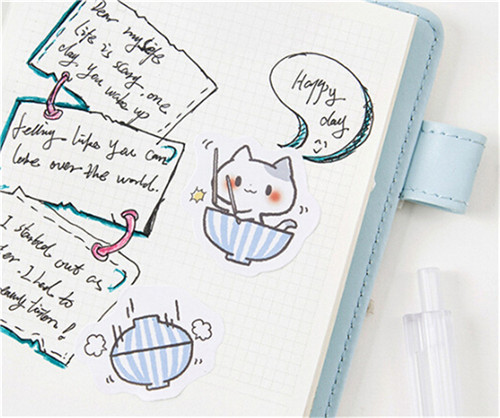 Dear my life
life is scary, one
day, you wake up
feeling like you can
take over the world.
I started out as
I had to
Happy
day